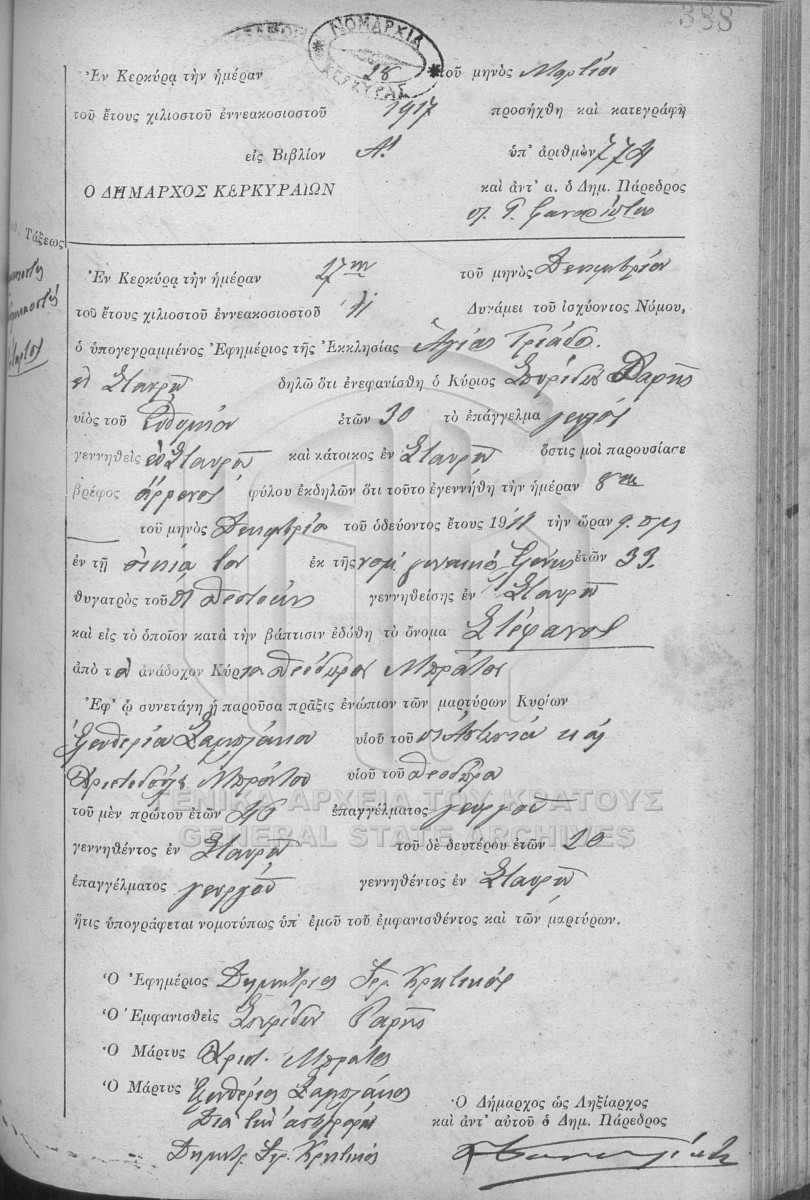 388
ΝΟΜΑΡΧΙΑ ΚΕΡΚΥΡΑΣ
Ἐν Κερκύρᾳ τὴν ἡμέραν 28 τοῦ μηνὸς Μαρτίου
τοῦ ἔτους χιλιοστοῦ ἐννεακοσιοστοῦ 1917 προσήχθη καὶ κατεγράφη
εἰς Βιβλίον Α! ὑπ' ἀριθμὸν 774
Ο ΔΗΜΑΡΧΟΣ ΚΕΡΚΥΡΑΙΩΝ καὶ ἀντ' α. ὁ Δημ. Πάρεδρος
Τάξεως
Ἐν Κερκύρᾳ τὴν ἡμέραν 27ην τοῦ μηνὸς Δεκεμβρίου
τοῦ ἔτους χιλιοστοῦ ἐννεακοσιοστοῦ 11 Δυνάμει τοῦ ἰσχύοντος Νόμου,
ὁ ὑπογεγραμμένος Ἐφημέριος τῆς Ἐκκλησίας Ἁγίας Τριάδο.
ἐν Σταυρῷ δηλῶ ὅτι ἐνεφανίσθη ὁ Κύριος Σπυρίδων Ραρῆς
υἱὸς τοῦ Εὐθυμίου ἐτῶν 30 τὸ ἐπάγγελμα γεωργός
γεννηθεὶς ἐν Σταυρῷ καὶ κάτοικος ἐν Σταυρῷ ὅστις μοὶ παρουσίασε
βρέφος ἄρρενος φύλου ἐκδηλῶν ὅτι τοῦτο ἐγεννήθη τὴν ἡμέραν 8ην
τοῦ μηνὸς Δεκεμβρίου τοῦ ὁδεύοντος ἔτους 1911 τὴν ὥραν 9. πμ
ἐν τῇ οἰκίᾳ του ἐκ τῆς νομ. γυναικός Ἑλένης ἐτῶν 33.
θυγατρὸς τοῦ γεννηθείσης ἐν Σταυρῷ
καὶ εἰς τὸ ὁποῖον κατὰ τὴν βάπτισιν ἐδόθη τὸ ὄνομα Στέφανος
ἀπὸ τὸν ἀνάδοχον Κύριον Θεόδωρον Μπράτον
Ἐφ' ᾧ συνετάγη ἡ παροῦσα πρᾶξις ἐνώπιον τῶν μαρτύρων Κυρίων
Ἐλευθερίου Σαμολάκου υἱοῦ τοῦ καὶ
Χριστοδούλου Μπράτου υἱοῦ τοῦ Θεοδώρου
ΓΕΝΙΚΑ ΑΡΧΕΙΑ ΤΟΥ ΚΡΑΤΟΥΣ
τοῦ μὲν πρώτου ἐτῶν ἐπαγγέλματος γεωργοῦ
GENERAL STATE ARCHIVES
γεννηθέντος ἐν Σταυρῷ τοῦ δὲ δευτέρου ἐτῶν 20
ἐπαγγέλματος γεωργοῦ γεννηθέντος ἐν Σταυρῷ
ἥτις ὑπογράφεται νομοτύπως ὑπ' ἐμοῦ τοῦ ἐμφανισθέντος καὶ τῶν μαρτύρων.
Ὁ Ἐφημέριος Δημήτριος Κρητικός
Ὁ Ἐμφανισθεὶς Σπυρίδων Ραρῆς
Ὁ Μάρτυς Χριστ. Μπράτος
Ὁ Μάρτυς Ἐλευθέριος Σαμολάκος
Διὰ τὴν ἀντιγραφήν
Δημητρ. Κρητικός
Ὁ Δήμαρχος ὡς Ληξίαρχος
καὶ ἀντ' αὐτοῦ ὁ Δημ. Πάρεδρος